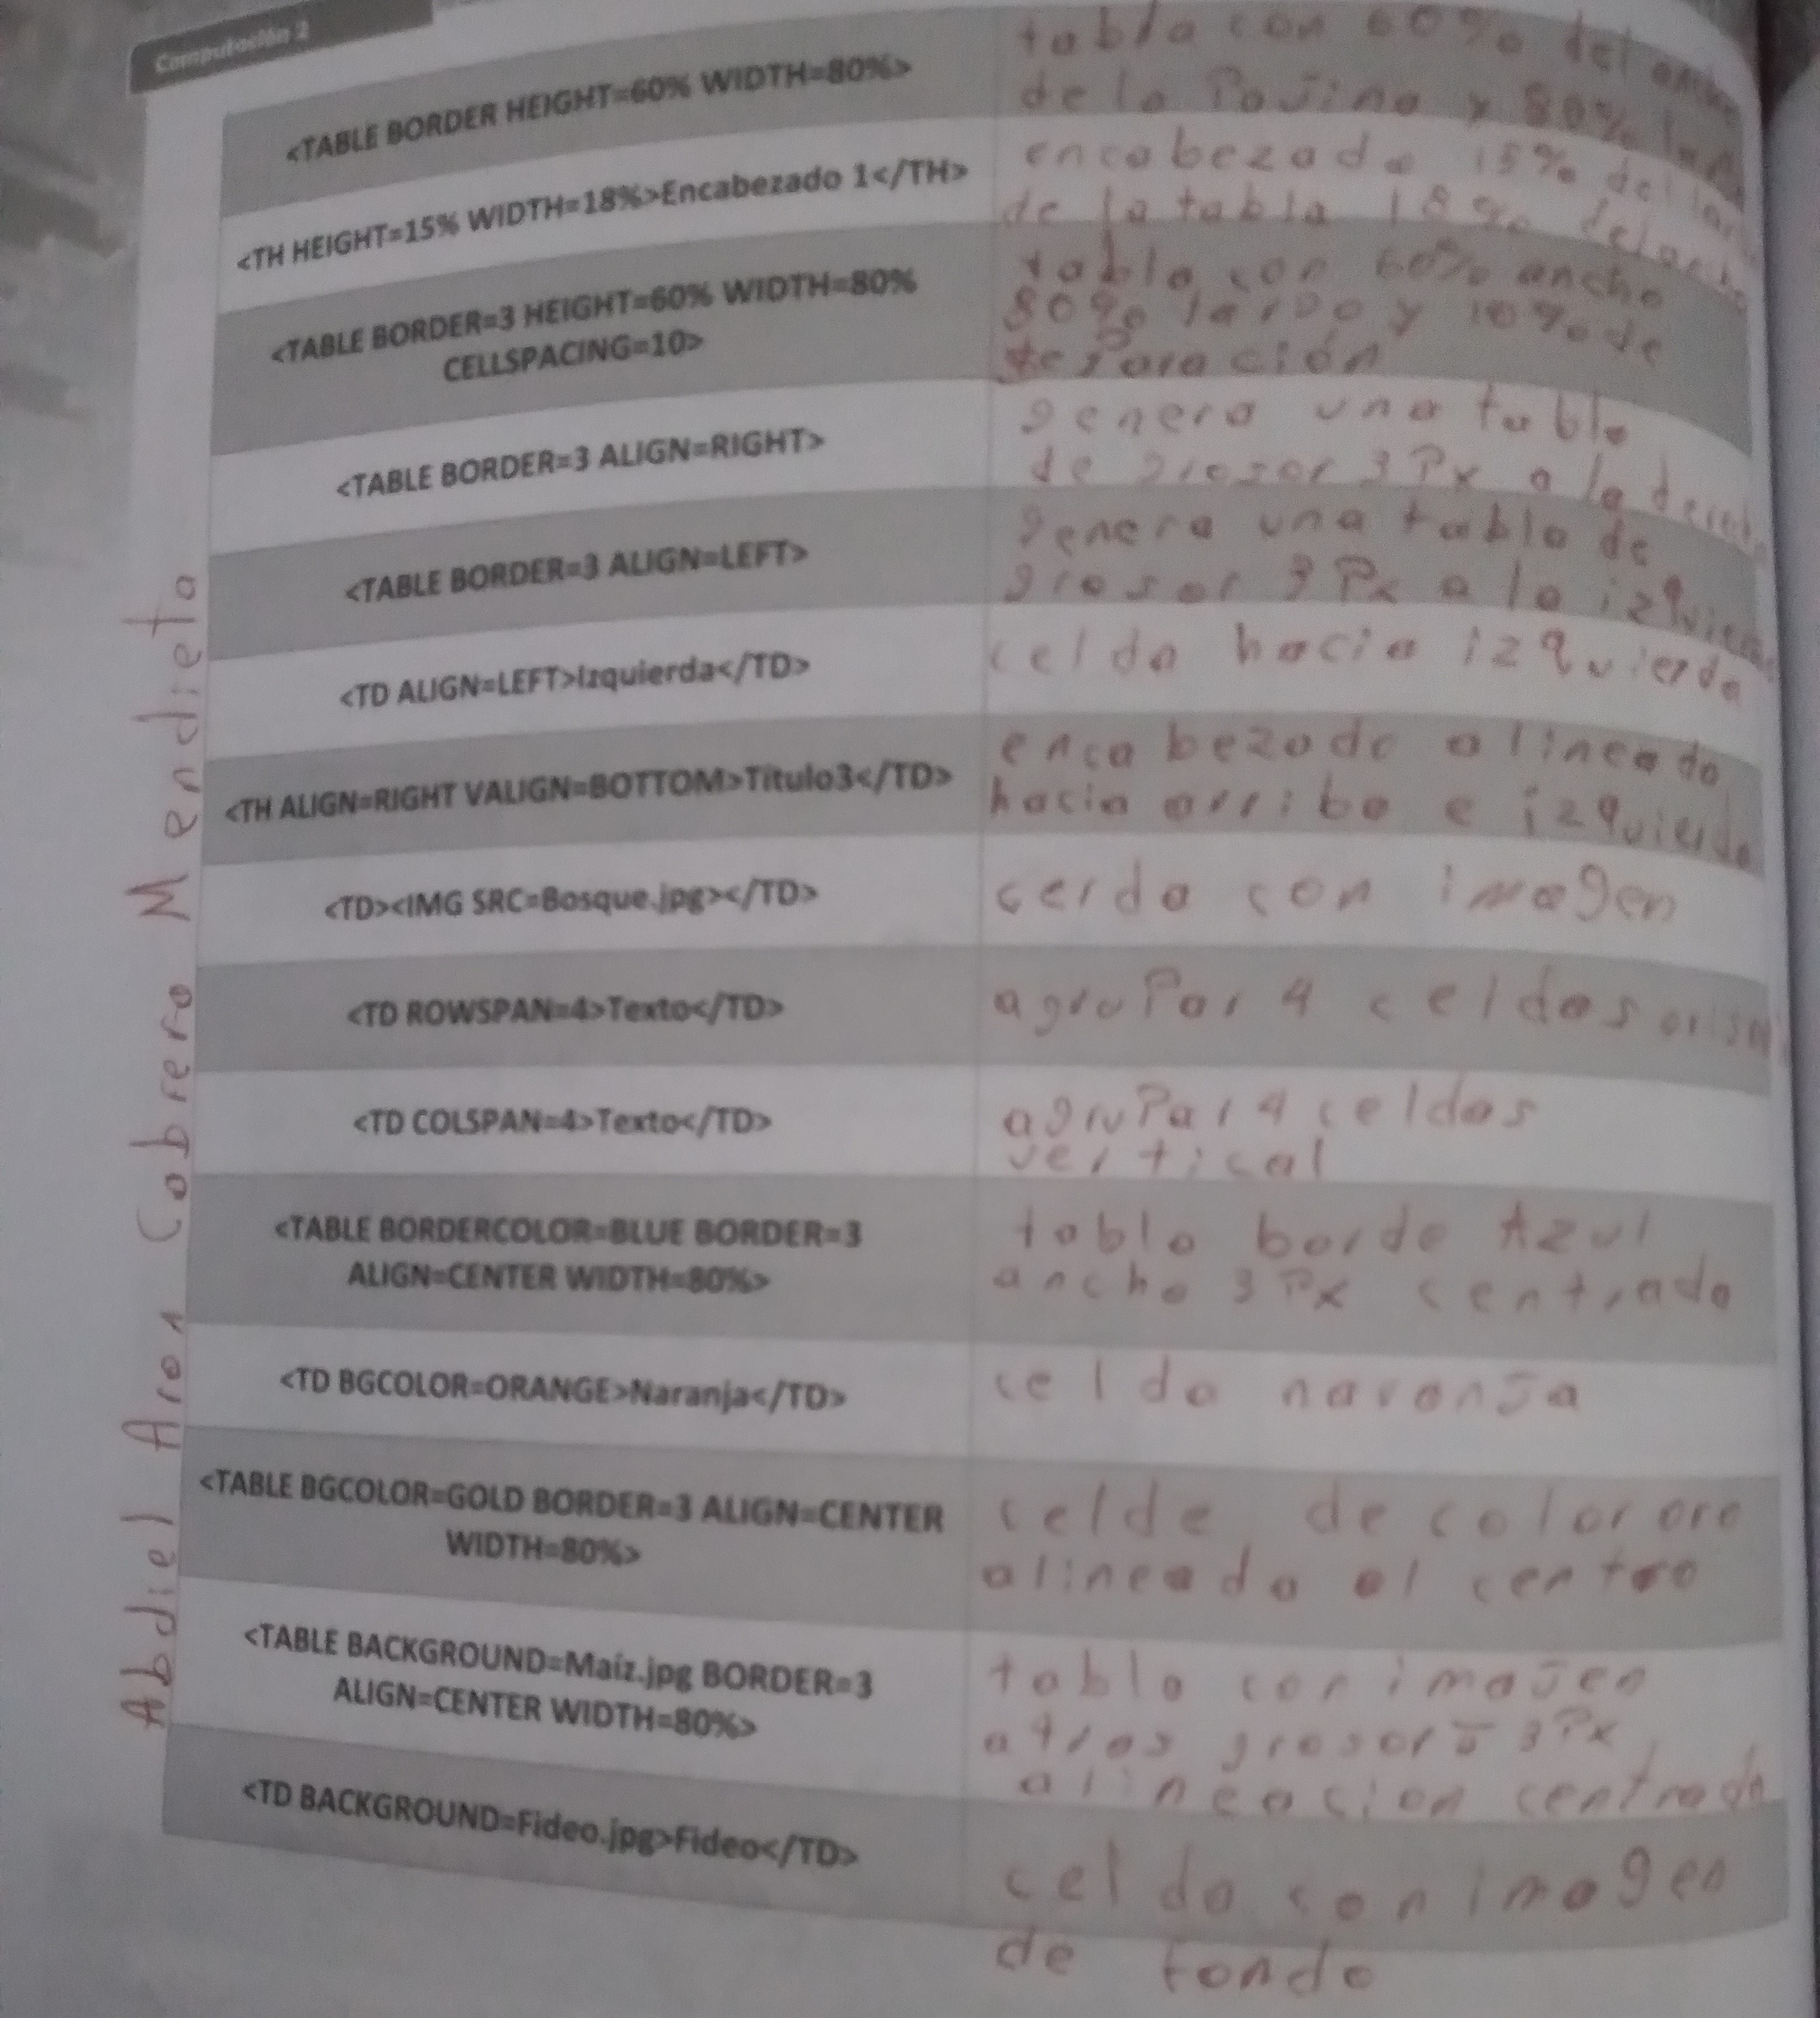 Computación 2
<TABLE BORDER HEIGHT=60% WIDTH=80%>
tabla con 60% del
de la Pajina y 80%
<TH HEIGHT=15% WIDTH=18%>Encabezado 1</TH>
encabezado 15% del
de la tabla 18% del
<TABLE BORDER=3 HEIGHT=60% WIDTH=80%
CELLSPACING=10>
tabla con 60% ancho
80% largo y 10% de
separación
<TABLE BORDER=3 ALIGN=RIGHT>
genera una tabla
de grosor 3 Px a la
<TABLE BORDER=3 ALIGN=LEFT>
genera una tabla de
grosor 3 Px a la
<TD ALIGN=LEFT>Izquierda</TD>
celda hacia izquierda
<TH ALIGN=RIGHT VALIGN=BOTTOM>Titulo3</TD>
encabezado alineado
hacia arriba e izquierda
<TD><IMG SRC=Bosque.jpg></TD>
cerda con imagen
<TD ROWSPAN=4>Texto</TD>
agruPar 4 celdas
<TD COLSPAN=4>Texto</TD>
agruPar 4 celdas
vertical
<TABLE BORDERCOLOR=BLUE BORDER=3
ALIGN=CENTER WIDTH=80%>
tabla borde Azul
ancho 3 Px centrado
<TD BGCOLOR=ORANGE>Naranja</TD>
celda naranja
<TABLE BGCOLOR=GOLD BORDER=3 ALIGN=CENTER
WIDTH=80%>
celde de color oro
alineada al centro
<TABLE BACKGROUND=Maíz.jpg BORDER=3
ALIGN=CENTER WIDTH=80%>
tabla con imajen
atras grosor 3 Px
alineacion centrada
<TD BACKGROUND=Fideo.jpg>Fideo</TD>
celda con imagen
de fondo
Abdiel Aron Cabrera Mendieta